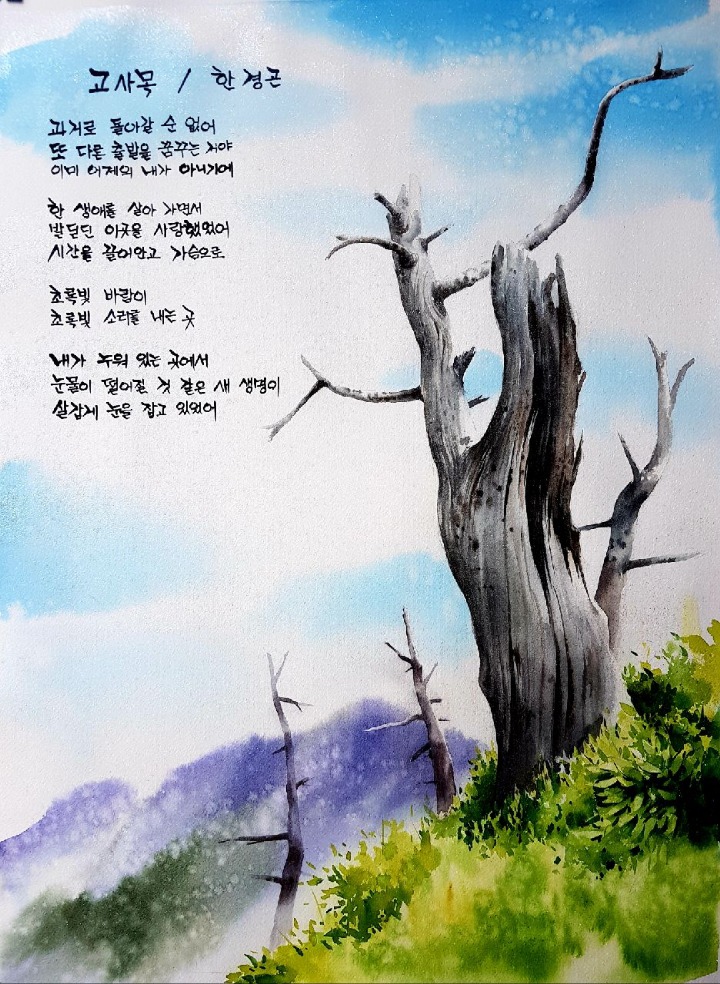 고사목 / 한경곤
과거로 돌아갈 순 없어
또 다른 출발을 꿈꾸는 거야
이미 어제의 내가 아니기에
한 생애를 살아 가면서
발 딛던 이곳을 사랑했었어
시간을 끌어안고 가슴으로
초록빛 바람이
초록빛 소리를 내는 곳
내가 누워 있는 곳에서
눈물이 떨어질 것 같은 새 생명이
살갑게 눈을 잡고 있었어